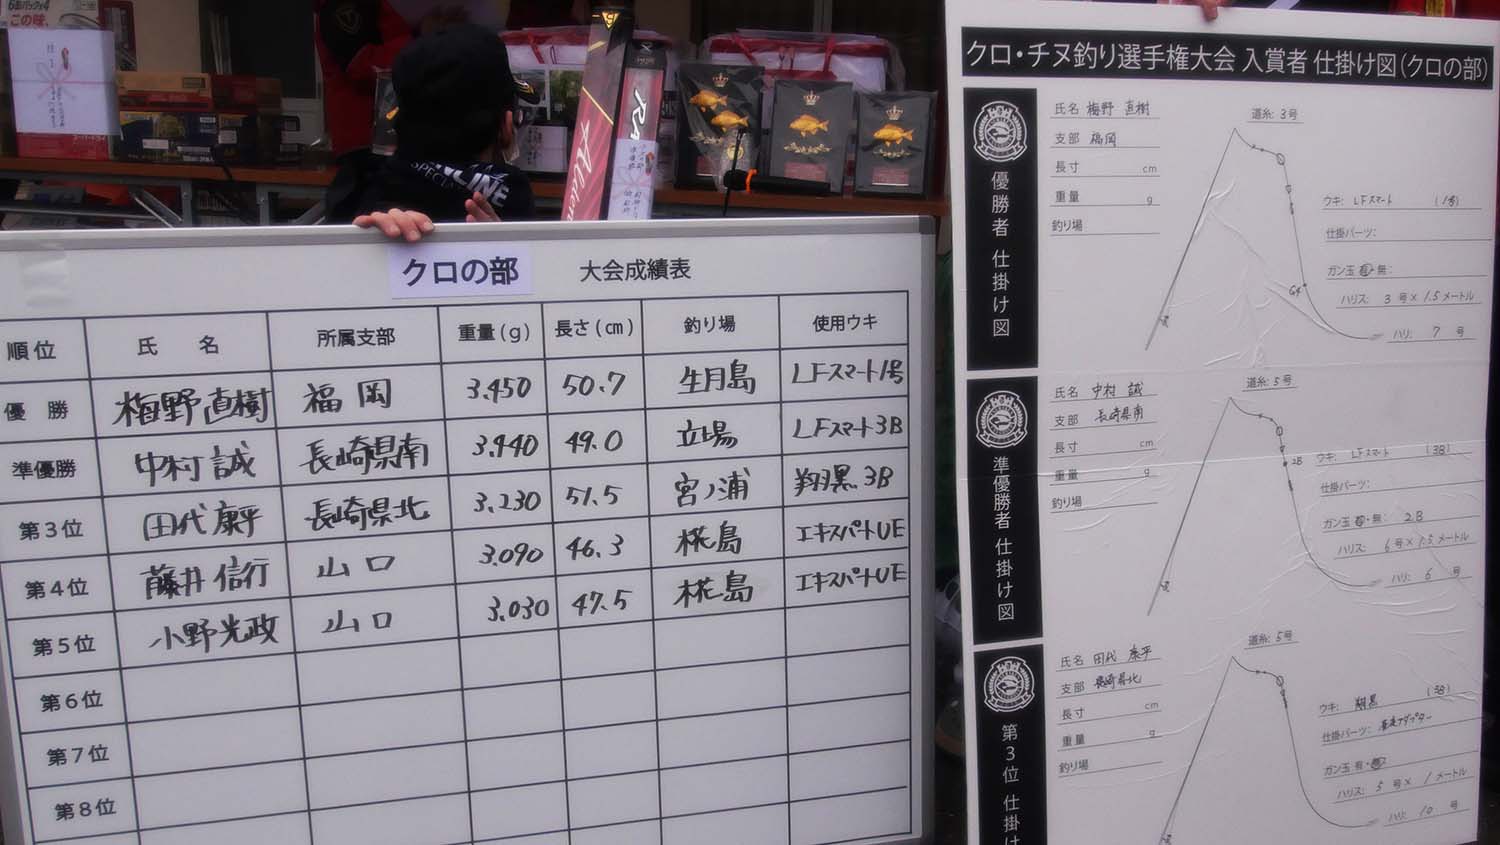 6缶パック×4
この味、
スーパードライ
Aldion
NLINE
SPECIAL
クロの部 大会成績表
順位 氏 名 所属支部 重量(g) 長さ(cm) 釣り場 使用ウキ
優 勝 梅野直樹 福岡 3.450 50.7 生月島 LFスマート1号
準優勝 中村誠 長崎県南 3.440 49.0 立場 LFスマート3B
第3位 田代康平 長崎県北 3.230 51.5 宮ノ浦 翔黒3B
第4位 藤井信行 山口 3.090 46.3 椛島 エキスパートUE
第5位 小野光政 山口 3.030 47.5 椛島 エキスパートUE
第6位
第7位
第8位
クロ・チヌ釣り選手権大会 入賞者 仕掛け図(クロの部)
優勝者 仕掛け図
氏名 梅野 直樹
支部 福岡
長寸 cm
重量 g
釣り場
道糸: 3号
ウキ: LFスマート (1号)
仕掛パーツ:
ガン玉 有・無:
G4
ハリス: 3号×1.5メートル
ハリ: 7号
準優勝者 仕掛け図
氏名 中村 誠
支部 長崎県南
長寸 cm
重量 g
釣り場
道糸: 5号
2B
ウキ: LFスマート (3B)
仕掛パーツ:
ガン玉 有・無: 2B
ハリス: 6号×1.5メートル
ハリ: 6号
第3位 仕掛け
氏名 田代 康平
支部 長崎県北
長寸 cm
重量 g
釣り場
道糸: 5号
ウキ: 翔黒 (3B)
仕掛パーツ: アダプター
ガン玉 有・無
ハリス: 5号×1メートル
ハリ: 10号